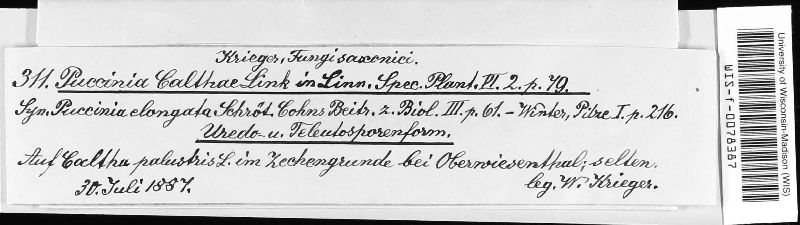 Krieger, Fungi saxonici.
311. Puccinia Calthae Link in Linn. Spec. Plant. VI. 2. p. 79.
Syn. Puccinia elongata Schröt. Cohns Beitr. z. Biol. III. p. 61. – Winter, Pilze I. p. 216.
Uredo- u. Teleutosporenform.
Auf Caltha palustris L. im Zechengrunde bei Oberwiesenthal; selten.
30. Juli 1887. leg. W. Krieger.
University of Wisconsin-Madison (WIS)
WIS-f-0078387